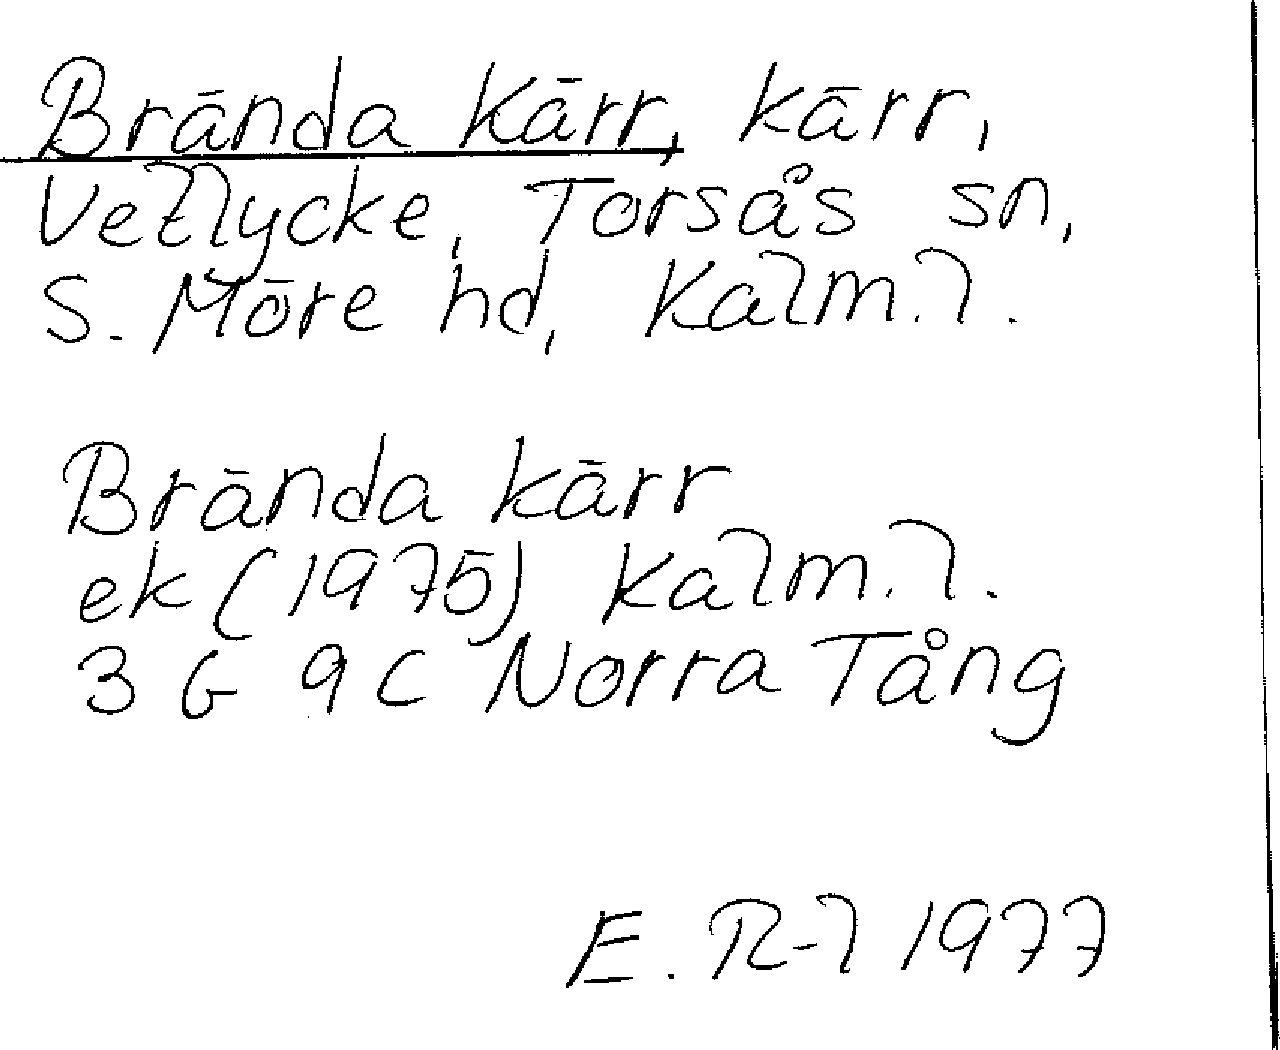 Brända kärr, kärr,
Vetlycke, Torsås sn,
S. Möre hd, Kalm. l.
Brända kärr
ek (1975) Kalm. l.
3 G 9 C Norra Tång
E. R-l 1977